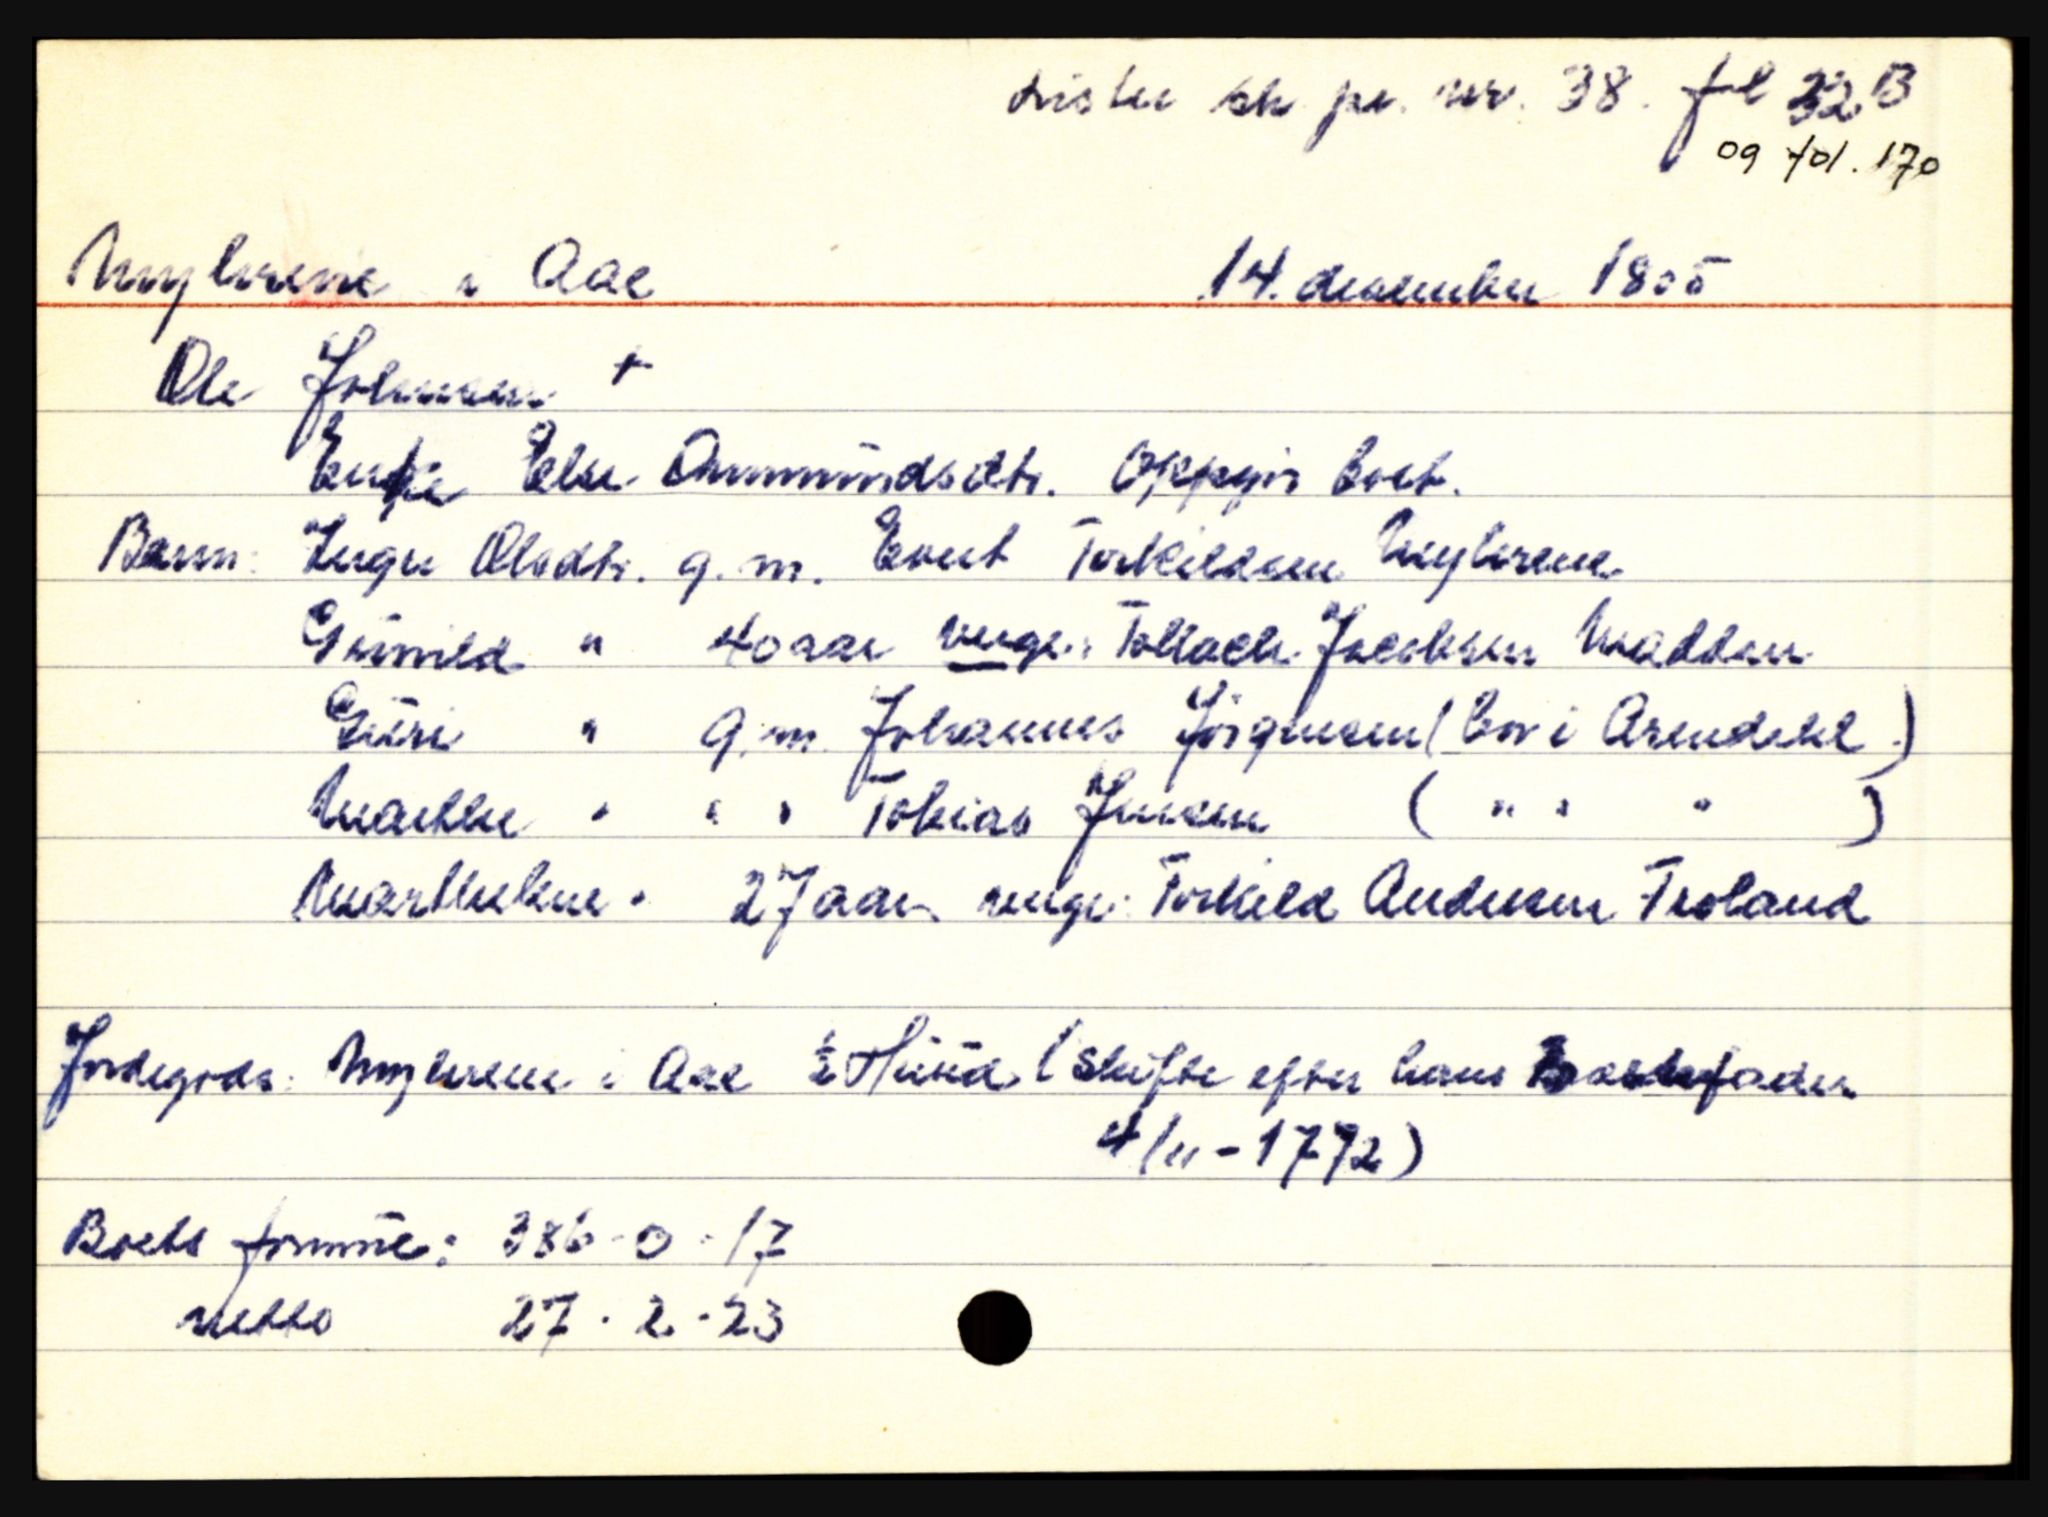 Lister sk. pr. nr. 38. fol 32B
09 fol. 170
Myhrene i Aae 14. desember 1805
Ole Johnsen +
Enke Else Ammundsdtr. Oppgir boet.
Barn: Inger Olsdtr. g.m. Evert Torkildsen Myhrene
Gunild " 40 aar verge: Tollach Jacobsen
Guri " g.m. Johannes Jörgensen (bor i Arendahl.)
Marthe " " " Tobias Jensen ( " " " )
Marthelene " 27 aar verge: Torkild Andersen Troland
Jordegods: Myhrene i Aae ½ Huud (skifte efter hans Bestefader
4/11-1772)
Boets formue: 386-0-17
netto 27-2-23